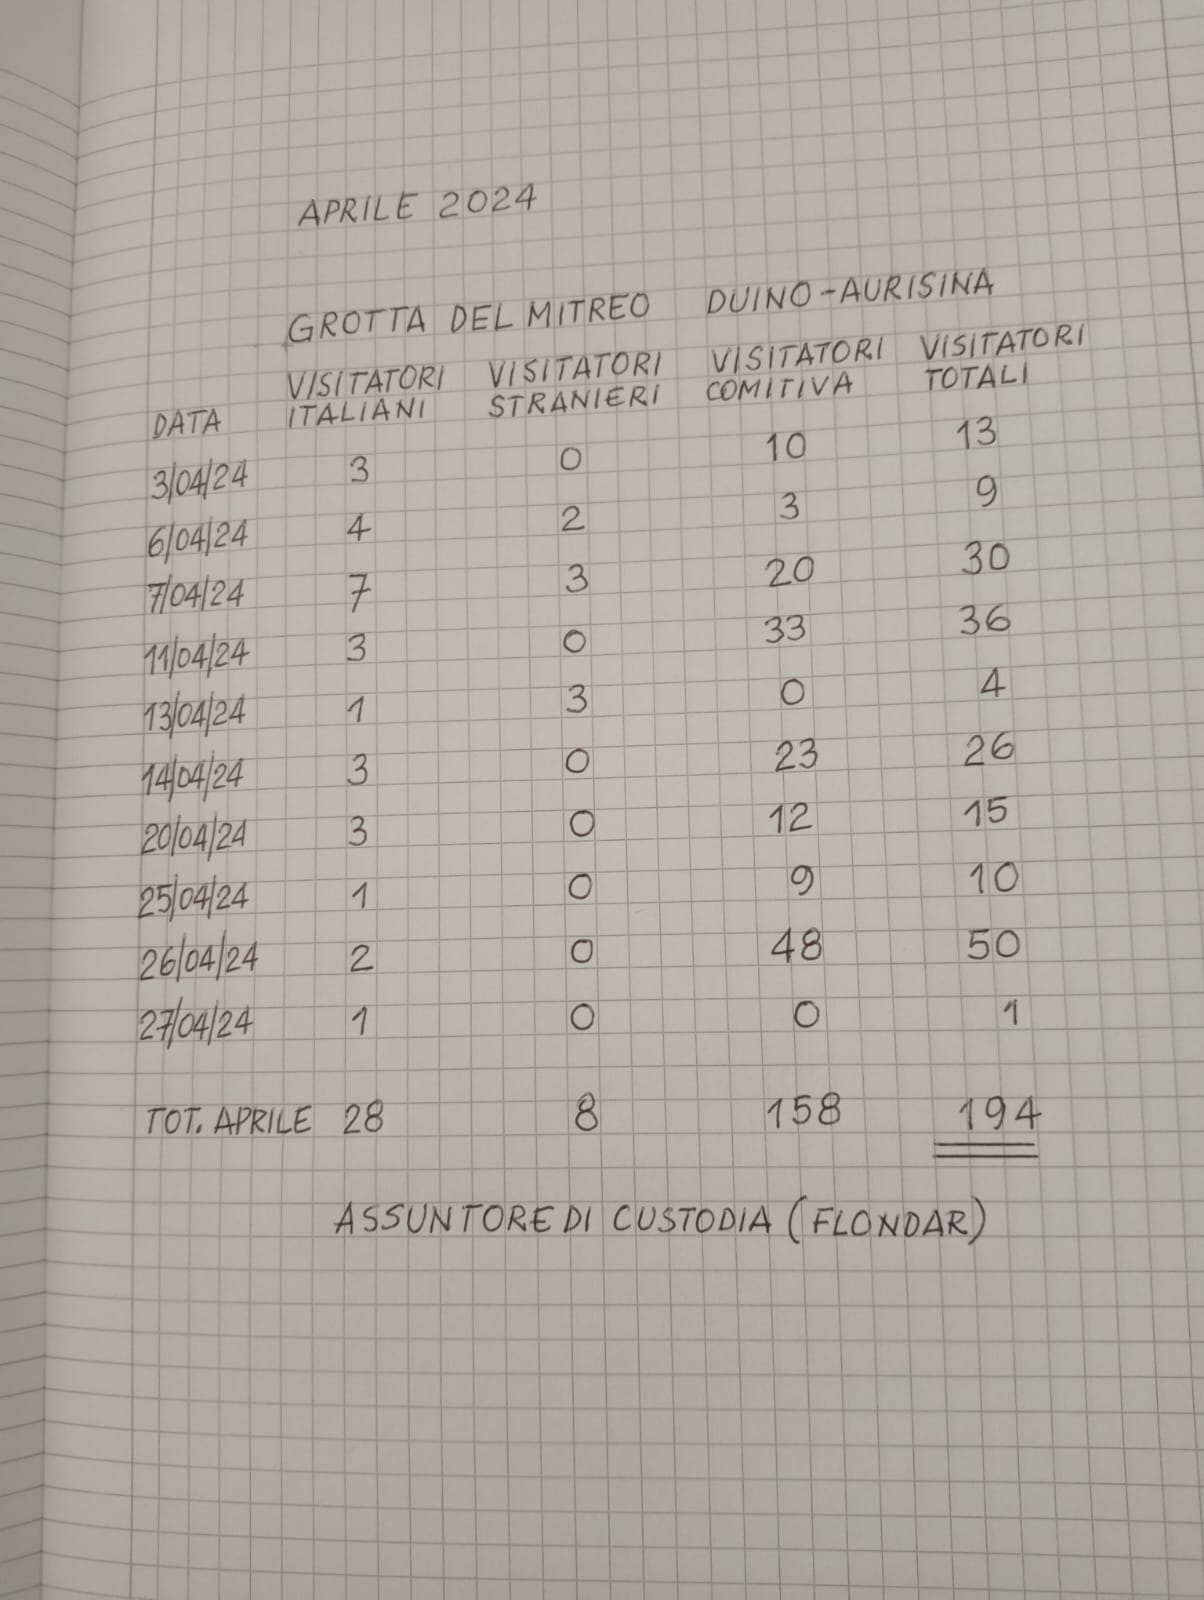 APRILE 2024
GROTTA DEL MITREO DUINO-AURISINA
DATA VISITATORI ITALIANI VISITATORI STRANIERI VISITATORI COMITIVA VISITATORI TOTALI
3/04/24 3 0 10 13
6/04/24 4 2 3 9
7/04/24 7 3 20 30
11/04/24 3 0 33 36
13/04/24 1 3 0 4
14/04/24 3 0 23 26
20/04/24 3 0 12 15
25/04/24 1 0 9 10
26/04/24 2 0 48 50
27/04/24 1 0 0 1
TOT. APRILE 28 8 158 194
ASSUNTORE DI CUSTODIA (FLONDAR)